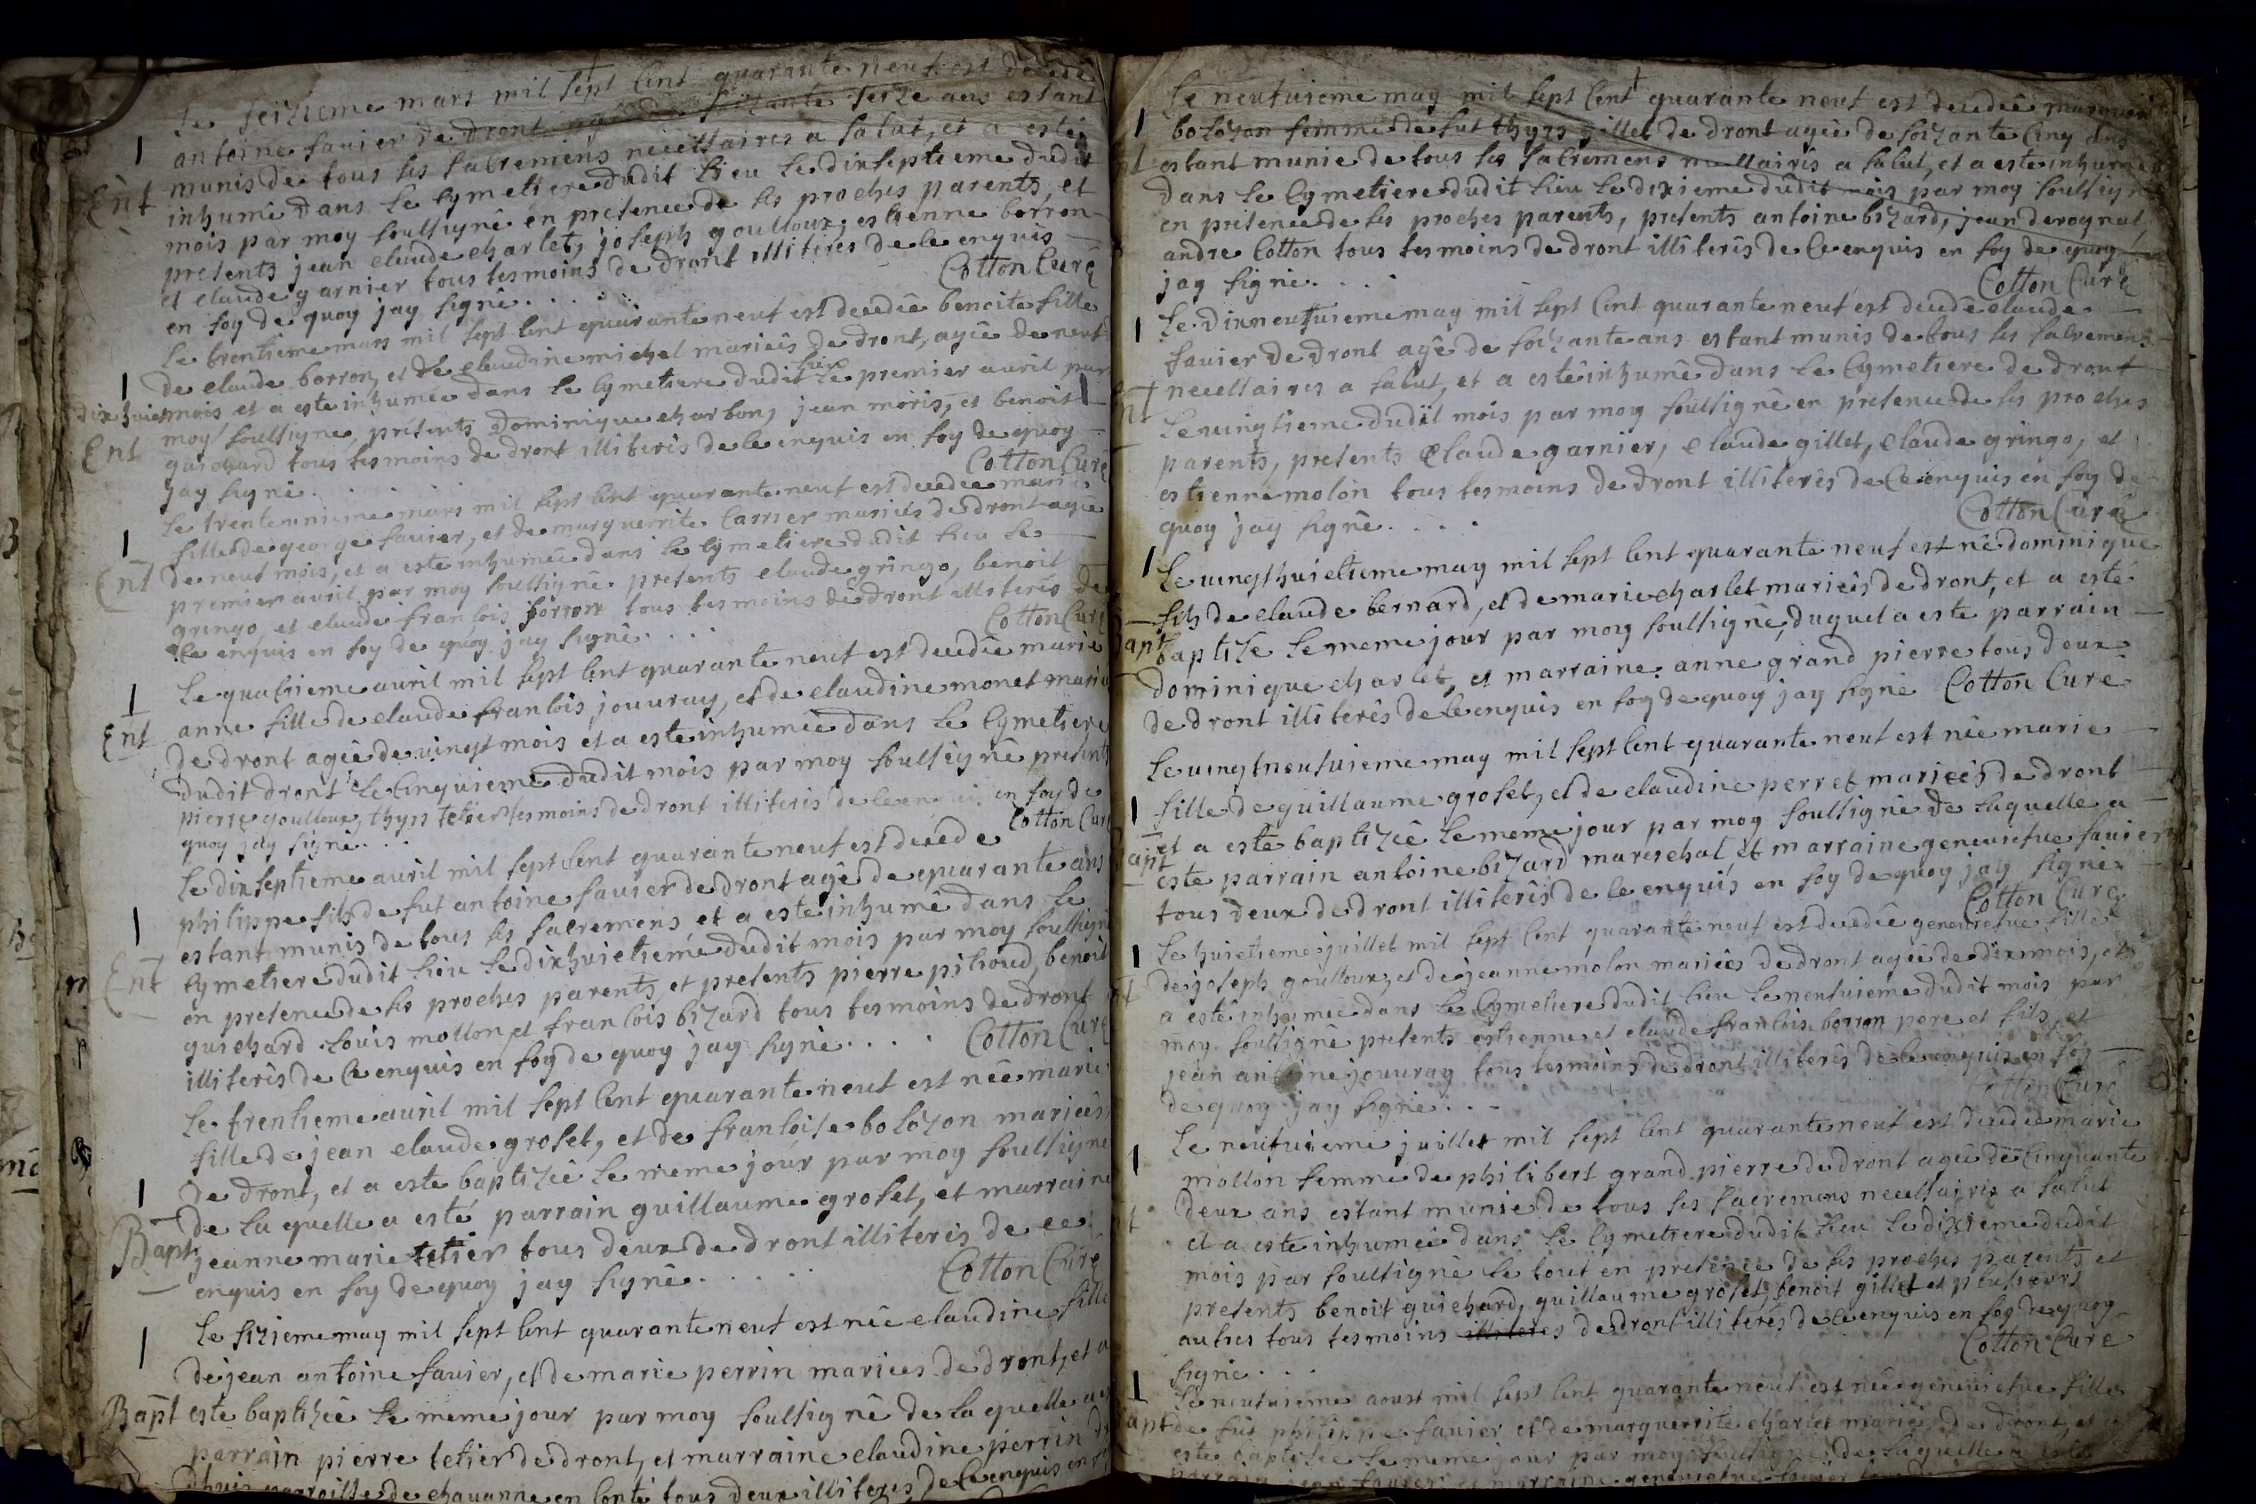 Le seizieme mars mil sept Cent quarante neuf est decedé
antoine favier de dront agé de soizante seize ans estant
munis de tous ses sacremens necessaires a salut, et a esté
Ent
inhumé dans le Cymetiere dudit lieu le dixseptieme dudit
mois par moy soussigné en presence de ses proches parents, et
presents jean claude charlet, joseph goulloux, estienne borron
et claude garnier tous tesmoins de dront illiterés de ce enquis
en foy de quoy jay signé . . . . Cotton Curé
Le trentieme mars mil sept Cent quarante neuf est decedée benoite fille
de claude borron, et de claudine michel mariées de dront, agée de neuf
dixhuict mois et a esté inhumée dans le Cymetiere dudit lieu le premier avril par
moy soussigné, presents Dominique charbon, jean moris, et benoit
Ent
guichard tous tesmoins de dront illiterés de ce enquis en foy de quoy
jay signé. Cotton Curé
Le trente unieme mars mil sept Cent quarante neuf est decedée marie
fille de george favier, et de marguerrite Carrier mariés de dront agée
Ent
de neuf mois, et a esté inhumée dans le Cymetiere dudit lieu le
premier avril par moy soussigné. presents claude gringo, benoit
gringo, et claude francois borron tous tesmoins de dront illiterés de
ce enquis en foy de quoy jay signé . . . . Cotton Curé
Le quatrieme avril mil sept Cent quarante neuf est decedée marie
anne fille de claude francois jouvray, et de claudine monet mariés
Ent
de dront agée de vingt mois et a esté inhumée dans le Cymetiere
dudit dront le Cinquieme dudit mois par moy soussigné presents
pierre goulloux, thyrs tetier tesmoins de dront illiterés de ce enquis en foy de
quoy jay signé . . . Cotton Curé
Le dixseptieme avril mil sept Cent quarante neuf est decedé
philippe fils de fut antoine favier de dront agé de quarante ans
estant munis de tous ses sacremens, et a esté inhumé dans le
Ent
Cymetiere dudit lieu le dixhuictieme dudit mois par moy soussigné
en presence de ses proches parents, et presents pierre pilioud, benoit
guichard Louis mollon et francois bizard tous tesmoins de dront
illiterés de Ce enquis en foy de quoy jay signé . . . . Cotton Curé
Le trentieme avril mil sept Cent quarante neuf est née marie
fille de jean claude groset, et de francoise bolozon mariées
de dront, et a esté baptizée le meme jour par moy soussigné
de la quelle a esté parrain guillaume groset, et marraine
Bapt
jeanne marie tetier tous deux de dront illiterés de ce
enquis en foy de quoy jay signé . . . . . Cotton Curé
Le sizieme may mil sept Cent quarante neuf est née claudine fille
de jean antoine favier, et de marie perrin mariées de dront, et a
Bapt esté baptizée le meme jour par moy soussigné de la quelle a
parrain pierre tetier de dront, et marraine claudine perrin
dhuis parroisse de chavanne en Conté tous deux illiterés de Ce enquis en
Le neufvieme may mil sept Cent quarante neuf est decedée
bolozon femme de fut thyrs gillet de dront agée de soizante Cinq ans
estant munie de tous ses sacremens necessaires a salut, et a esté inhumée
dans le Cymetiere dudit lieu le dixieme dudit mois par moy soussigné
en presence de ses proches parents, presents antoine bizard, jean derognat,
andre Cotton tous tesmoins de dront illiterés de Ce enquis en foy de quoy
jay signé . . . . Cotton Curé
Le dixneufvieme may mil sept Cent quarante neuf est decedé claude
favier de dront agé de soizante ans estant munis de tous ses sacremens
necessaires a salut, et a esté inhumé dans le Cymetiere de dront
Le vingtieme dudit mois par moy soussigné en presence de ses proches
parents, presents Claude garnier, claude gillet, claude gringo, et
estienne molon tous tesmoins de dront illiterés de Ce enquis en foy de
quoy jay signé . . . . Cotton Curé
Le vingthuictieme may mil sept Cent quarante neuf est né dominique
fils de claude bernard, et de marie charlet mariées de dront, et a esté
Bapt baptizé le meme jour par moy soussigné, duquel a esté parrain
dominique charlet, et marraine. anne grand pierre tous deux
de dront illiterés de Ce enquis en foy de quoy jay signé Cotton Curé
Le vingtneufvieme may mil sept Cent quarante neuf est née marie
fille de guillaume groset, et de claudine perret mariées de dront
et a esté baptizée le meme jour par moy soussigné de laquelle a
Bapt esté parrain antoine bizard mareschal, et marraine genevieve favier
tous deux de dront illiterés de Ce enquis en foy de quoy jay signé
Cotton Curé
Le huictieme juillet mil sept Cent quarante neuf est decedée genevieve fille
de joseph goulloux, et de jeanne molon mariées de dront agée de dix mois, et
a esté inhumée dans le Cymetiere dudit lieu le neufvieme dudit mois par
moy soussigné presents estienne et claude francois borron pere et fils, et
jean antoine jouvray tous tesmoins de dront illiterés de ce enquis en foy
de quoy jay signé . . . Cotton Curé
Le neufvieme juillet mil sept Cent quarante neuf est decedée marie
mollon femme de philibert grand pierre de dront agée de Cinquante
deux ans estant munie de tous ses sacremens necessaires a salut
et a esté inhumée dans le Cymetiere dudit lieu le dixieme dudit
mois par soussigné le tout en presence de ses proches parents et
presents benoit guichard, guillaume groset, benoit gillet et plusieurs
autres tous tesmoins illiteres de dront illiterés de Ce enquis en foy de quoy
signé . . . Cotton Curé
Le neufvieme aoust mil sept Cent quarante neuf est née genevieve fille
Bapt de fut philippe favier et de marguerrite charlet mariées de dront, et a
esté baptizée le meme jour par moy soussigné, de laquelle a esté
parrain jean favier et marraine genevieve favier